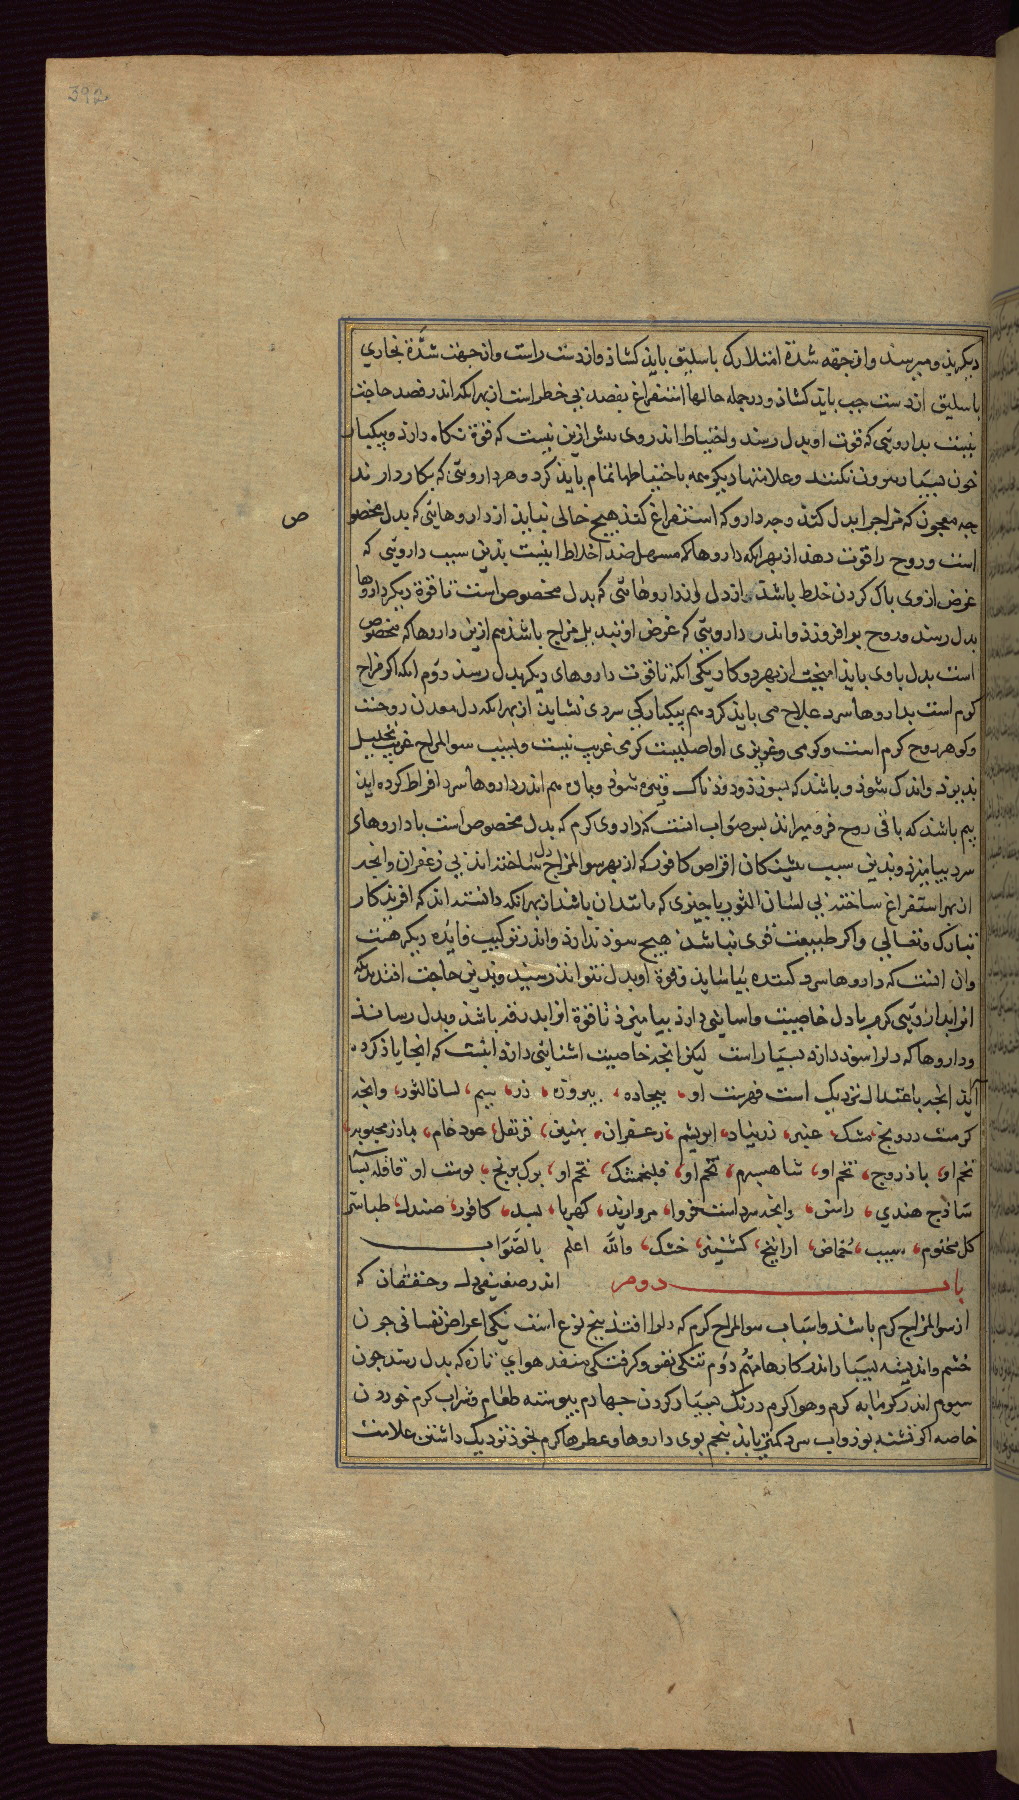 392
دیکر بذ و میرسند و از جهه شدة امتلا رک باسلیق باید کشاد و از دست راست و از جهت شدّة بخاری
باسلیق از دست جب باید کشاذ و در جمله حالها استفراغ بفصد بی خطر است از بهر انکه اندر فصد حاجت
نیست بداروئی که قوت او بدل رسد و احتیاط اندر وی بیش ازین نیست که قوة نکاه دارند و بیکبار
خون بسیار بیرون نکنند و علامتها دیکر همه با حتیاطها تمام باید کرد و هر داروئی که بکار دارند
جه معجون که مزاجرا بدل کند و جه دارو که استفراغ کند هیج خالی نباید از داروهایی که بدل مخصو
ص
است و روح را قوت دهد از بهر انکه داروهاء مسهل ضد اخلاط اینست بدین سبب داروئی که
غرض از وی باک کردن خلط باشد از دل اندر داروهائی که بدل مخصوص است تا قوة دیکر داروها
بدل رسد و روح بر افروزد و اندر داروئی که غرض او تبدیل مزاج باشد هم ازین داروها که مخصوص
است بدل باوی باید امیخت از بهر دو کار یکی انکه تا قوت داروهای دیکر بدل رسد دوم انکه اکر مزاج
کرم است بداروها سرد علاج می باید کرد هم بیکبارکی سردی نشاید از بهر انکه دل معدن روحست
و کوهر روح کرم است و کرمی و غریزی او اصلیست کرمی غریب نیست و بسبب سوالمزاج غریب تحلیل
بذیرد و اندک شود و باشد که بسوزد و دودناک و تیره شود و باره هم اندر داروها سرد افراط کرده اید
بیم باشد که باقی روح فرو میراند بس صواب انست که داروی کرم که بدل مخصوص است با داروهای
سرد بیامیزند و بدین سبب بیشینکان اقراص کافور که از بهر سوالمزاج دل ساختند اند بی زعفران و انجه
از بهر استفراغ ساختند بی لسان الثور یا جیزی که مانند ان باشد از بهر انکه دانسته اند که افریدکار
تبارک و تعالی و اکر طبیعت قوی نباشد هیج سود ندارد و اندر ترکیب فایده دیکر هست
و ان انست که داروها سرد کننده بیاساید و قوة او بدل نتواند رسید و بدین حاجت افتد بدانکه
انرا بداروئی کرم با دل خاصیت و اسایشی دارد بیامیزد تا قوة انرا بدرقه باشد و بدل رساند
و داروها که دلرا سود دارد بسیار است لیکن انجه خاصیت اشنایی دارد اینست که اینجا یاد کرده
آید انجه باعتدال نزدیک است فهرست او بیجاده بیروزه زر سیم لسان الثور و انجه
کرمست درونج مشک عنبر زرنباد ابریشم زعفران بهمنین قرنفل عود خام باذرنجبویه
تخم او باذروج تخم او شاهسبرم تخم او فلنجمشک تخم او برک برنج بوست او قاقله کبابه
ساذج هندی راسن و انجه سرد است مروارید کهربا بسد کافور صندل طباشیر
کل مختوم سیب حُماض اراتیج کشنیز خشک والله اعلم بالصَّواب
باب دوم اندر صفت نفی دل و خفقان که
از سوالمزاج کرم باشد و اسباب سوالمزاج کرم که دلرا افتد بنج نوع است یکی اعراض نفسانی جون
خشم و اندیشه بسیار اندر کارها مهم دوم تنکی نفس و کرفتکی منفذ هوای تازه که بدل رسد جون
سیوم اندر کرمابه کرم و هوا کرم درنک بسیار کردن جهارم بیوسته طعام و شراب کرم خوردن
خاصه اکر تشنه بود و اب سرد کمتر یابد بنجم بوی داروها و عطرها کرم بخوذ نزدیک داشتن علامت